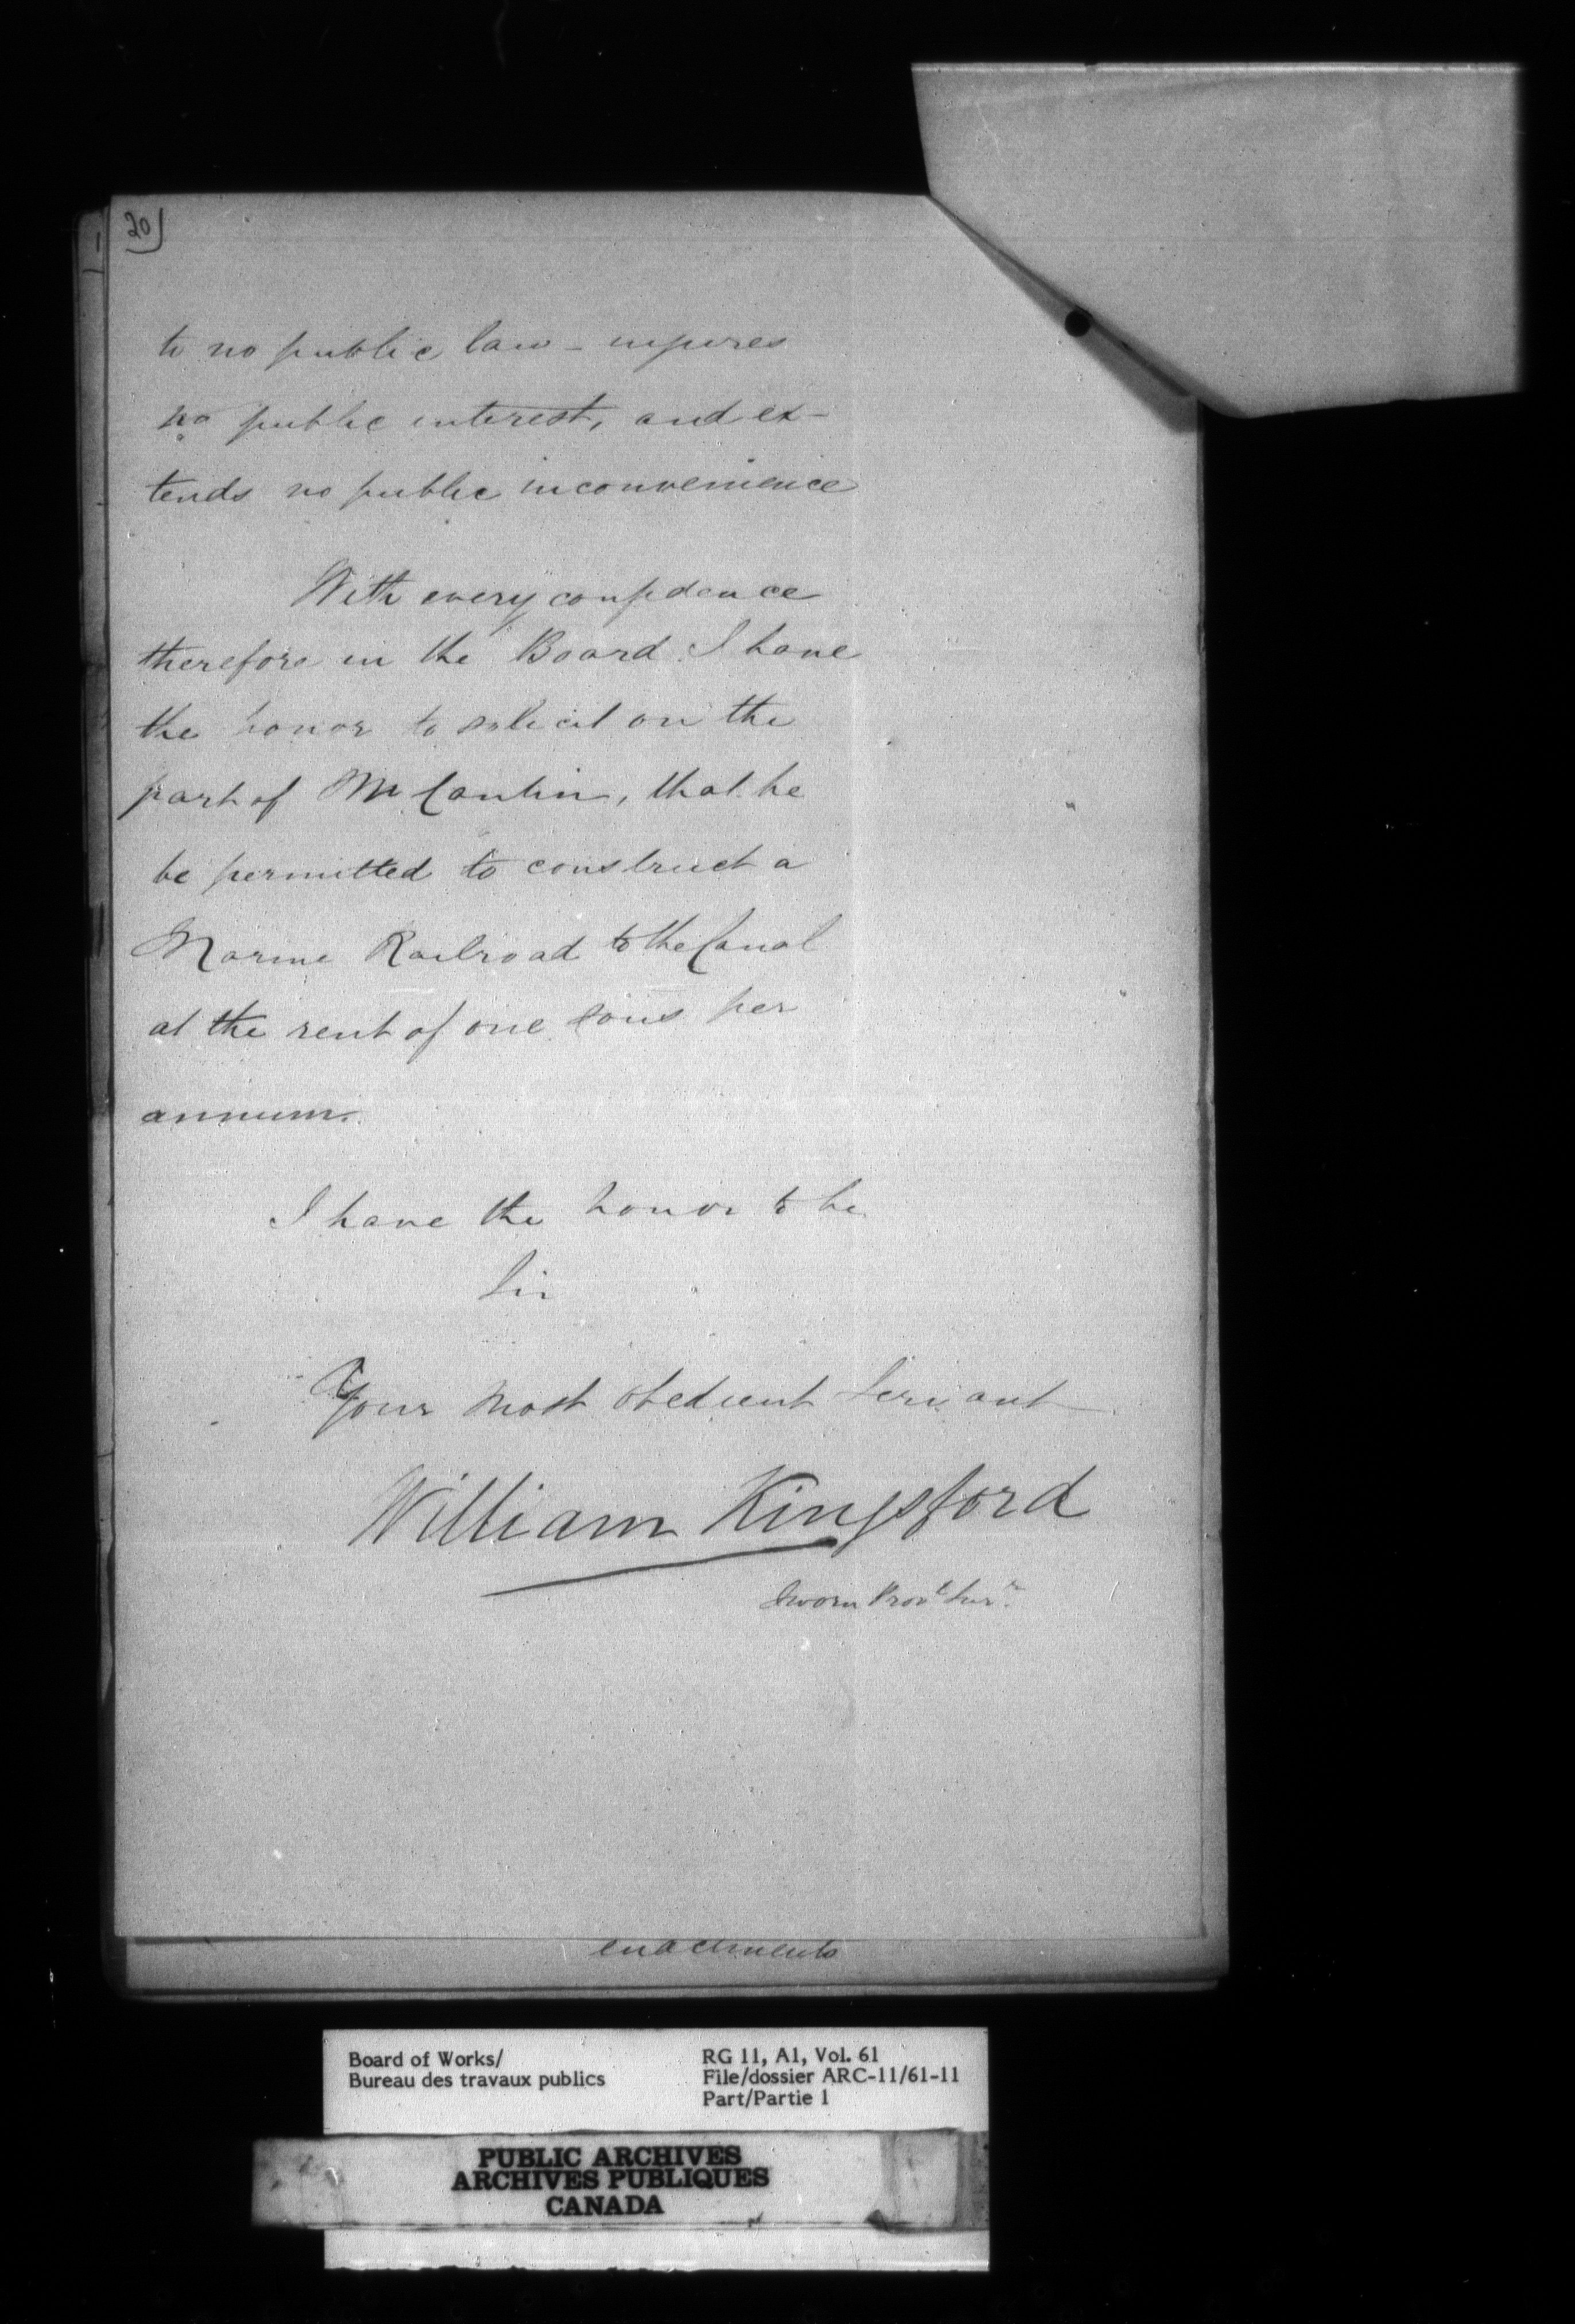 20
to no public law - injures
no public interest, and ex-
tends no public inconvenience
With every confidence
therefore in the Board I have
the honor to solicit on the
part of Mr Cantin, that he
be permitted to construct a
Marine Railroad to the Canal
at the rent of one sous per
annum.
I have the honor to be
Sir
Your most obedient Servant
William Kingsford
Sworn Provl Survr
enactments
Board of Works/
Bureau des travaux publics
RG 11, A1, Vol. 61
File/dossier ARC-11/61-11
Part/Partie 1
PUBLIC ARCHIVES
ARCHIVES PUBLIQUES
CANADA